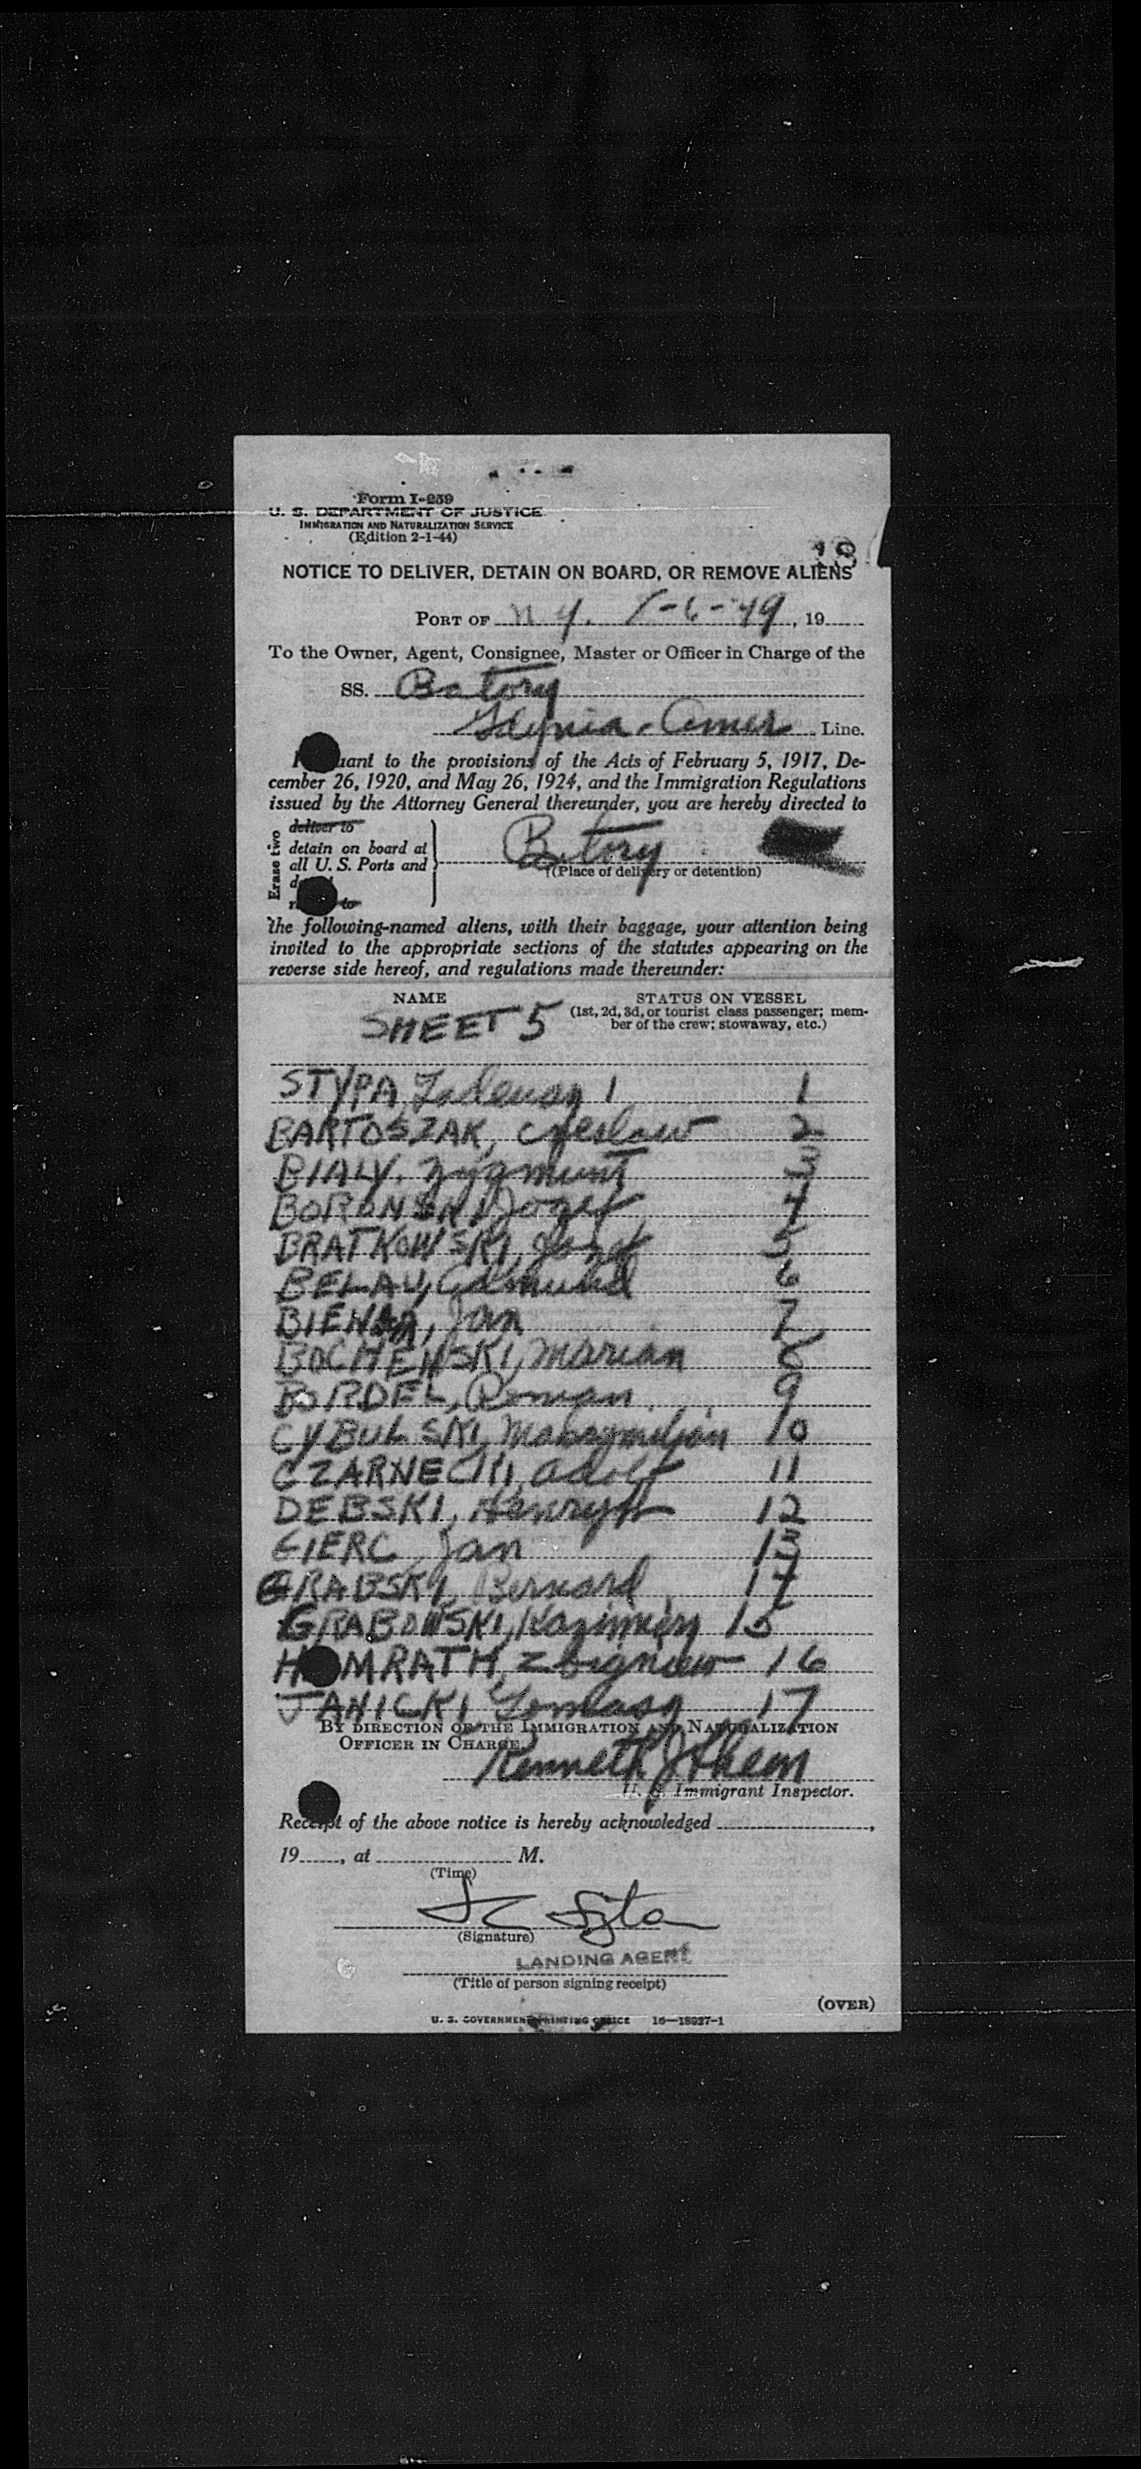 Form I-259
U. S. DEPARTMENT OF JUSTICE
IMMIGRATION AND NATURALIZATION SERVICE
(Edition 2-1-44)
18
NOTICE TO DELIVER, DETAIN ON BOARD, OR REMOVE ALIENS
PORT OF N.Y. 1-6-49, 19
To the Owner, Agent, Consignee, Master or Officer in Charge of the
SS. Batory
Gdynia-Amer Line.
uant to the provisions of the Acts of February 5, 1917, De-
cember 26, 1920, and May 26, 1924, and the Immigration Regulations
issued by the Attorney General thereunder, you are hereby directed to
Erase two
deliver to
detain on board at
all U. S. Ports and
to
Batory
(Place of delivery or detention)
the following-named aliens, with their baggage, your attention being
invited to the appropriate sections of the statutes appearing on the
reverse side hereof, and regulations made thereunder:
NAME STATUS ON VESSEL
(1st, 2d, 3d, or tourist class passenger; mem-
ber of the crew; stowaway, etc.)
SHEET 5
STYPA, Tadeusz 1 1
BARTOSZAK, Czeslaw 2
BIALY, Zygmunt 3
BORONSKI, Jozef 4
BRATKOWSKI, Jozef 5
BELAU, Edmund 6
Jan 7
BOCHENSKI, Marian 8
BORDEL, Roman 9
CYBULSKI, Maksymiljan 10
CZARNECKI, Adolf 11
DEBSKI, Henryk 12
GIERC, Jan 13
GRABSKI, Bernard 14
GRABOWSKI, Kazimierz 15
HOMRATH, Zbigniew 16
JANICKI, Tomasz 17
BY DIRECTION OF THE IMMIGRATION AND NATURALIZATION
OFFICER IN CHARGE,
Kenneth J.
U. S. Immigrant Inspector.
Receipt of the above notice is hereby acknowledged ,
19 , at M.
(Time)
(Signature)
LANDING AGENT
(Title of person signing receipt)
(OVER)
U. S. GOVERNMENT PRINTING OFFICE 16—18927-1